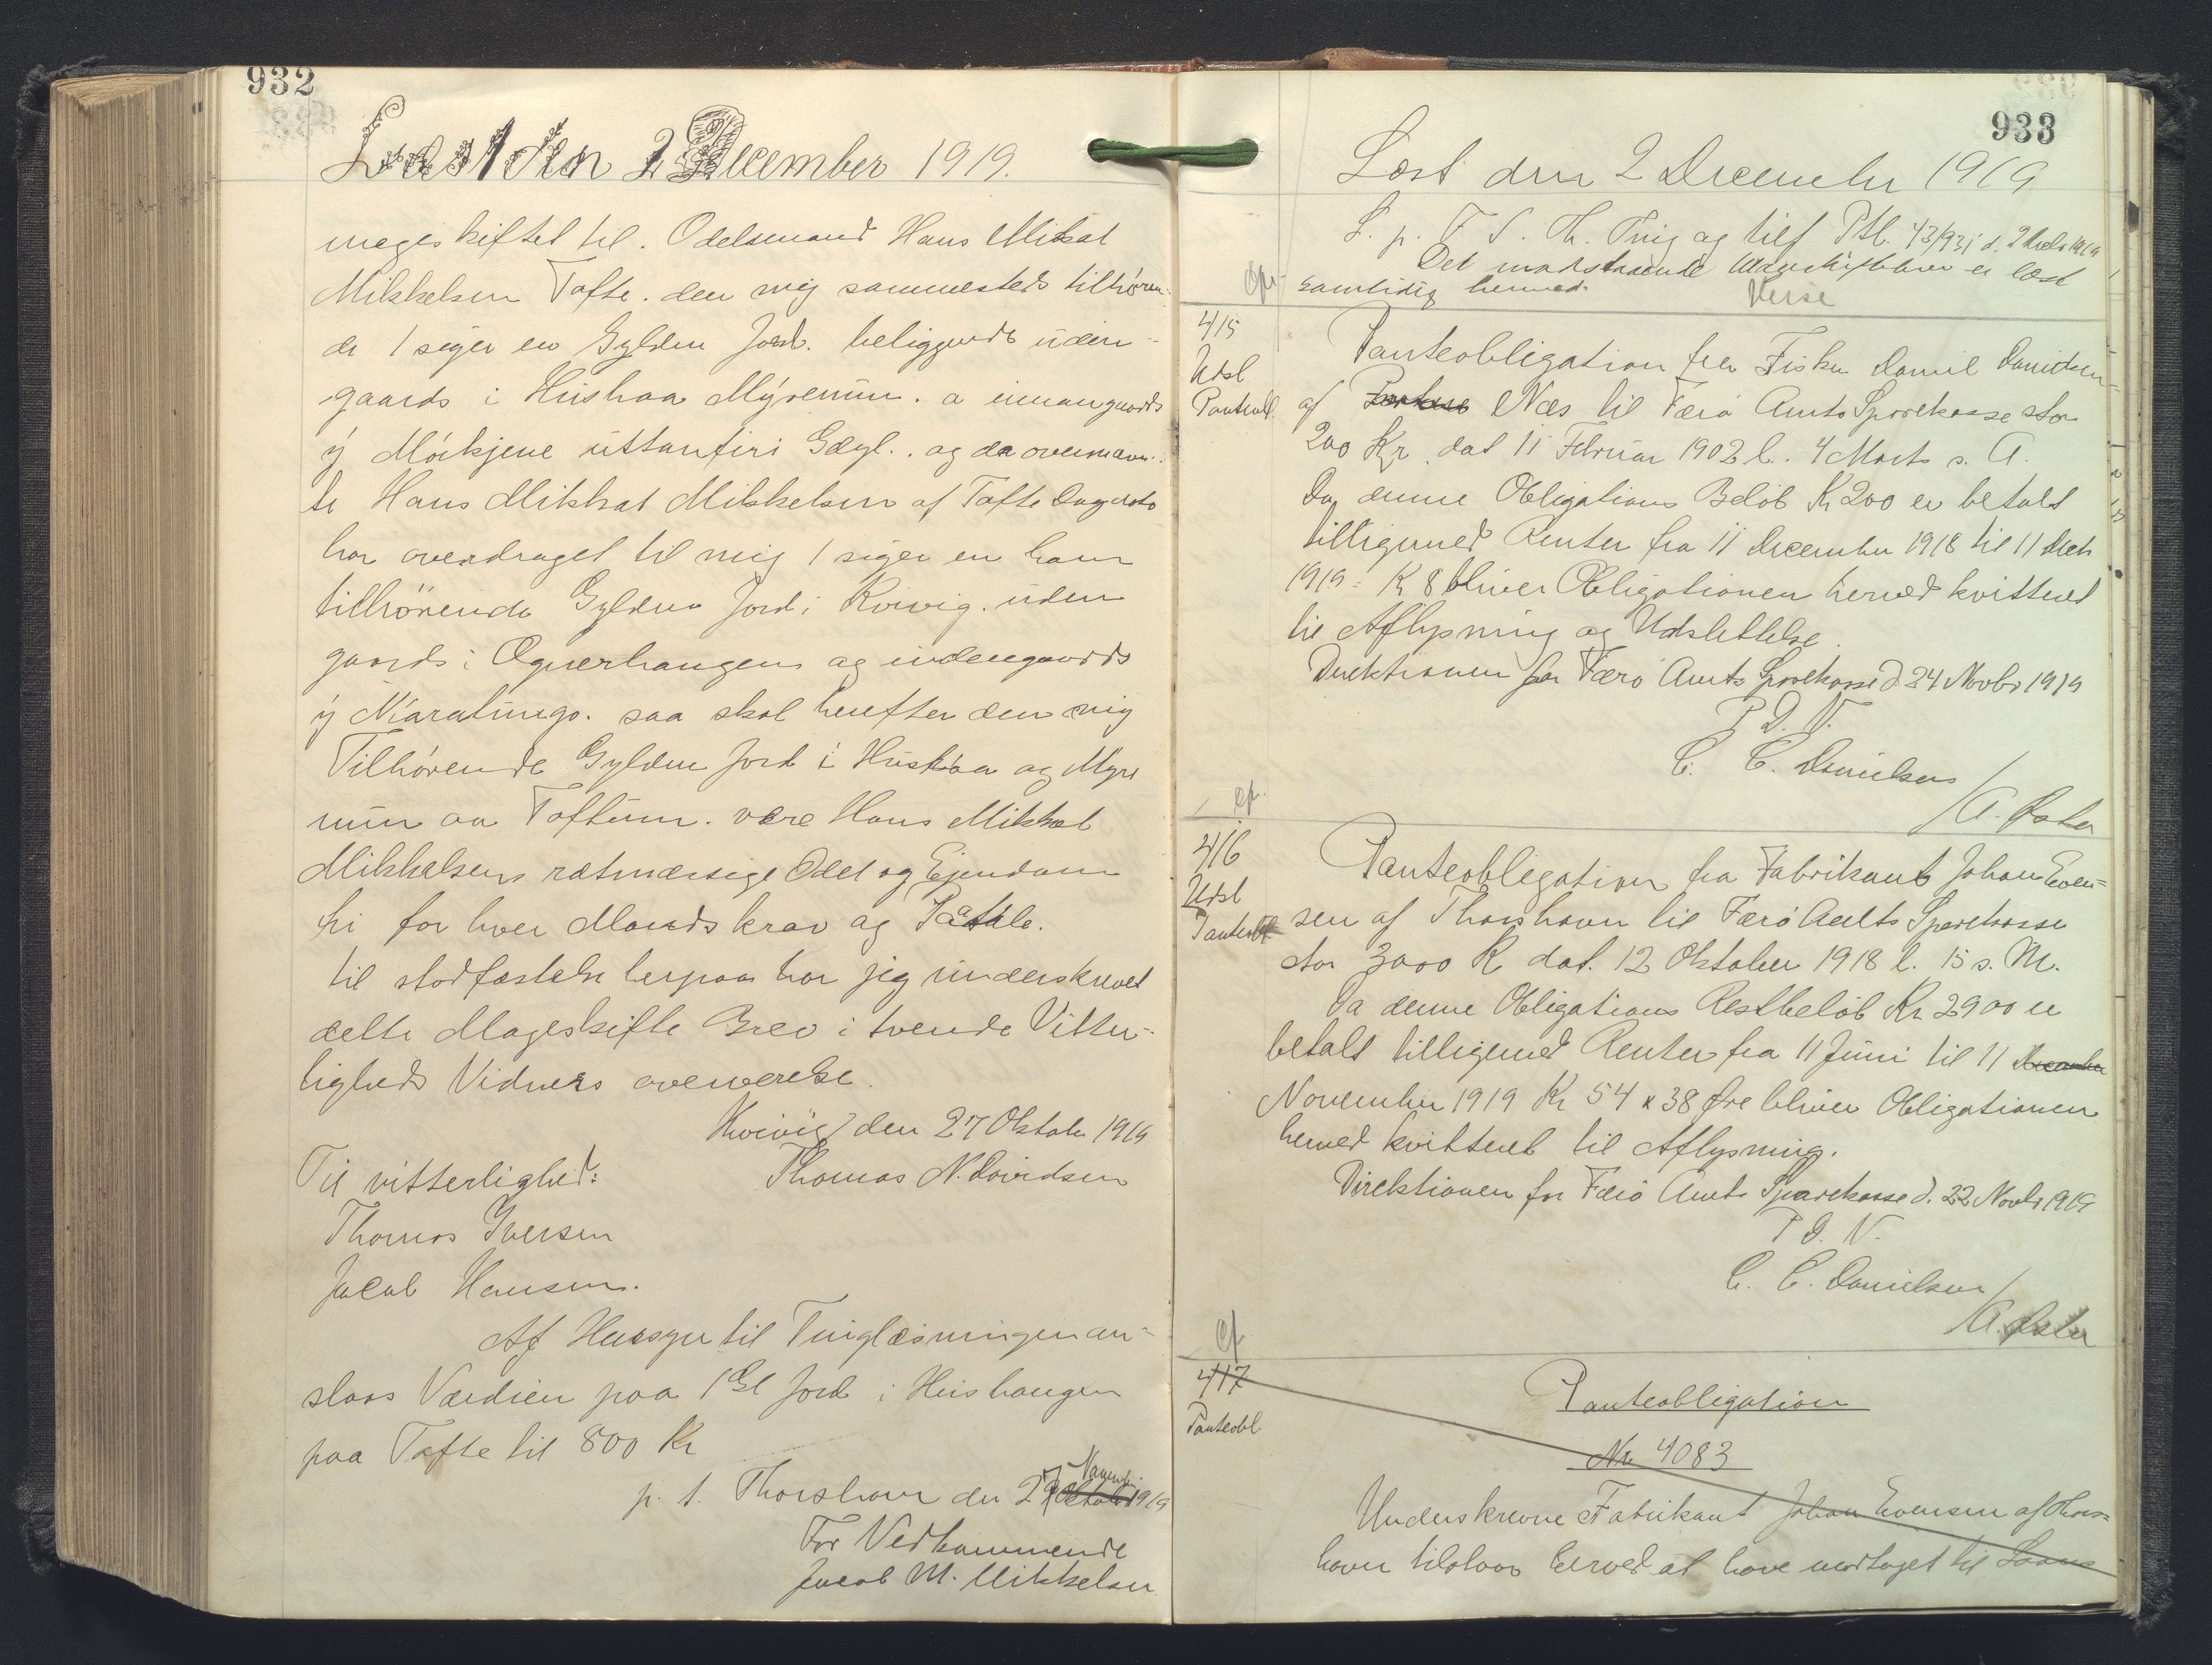 932
Læst den 2 December 1919.
mageskiftet til. Odelsmand Hans Mikkal
Mikkelsen Tofte. den mig sammesteds tilhøren-
de 1 siger en Gylden Jord. beliggende uden-
gaards i Húshaa Mýrenun. a innangaards
ý Mørkjene úttanfiri Gægl.. og da ovennævn-
te Hans Mikkal Mikkelsen af Tofte Dags dato
har overdraget til mig 1 siger en ham
tilhørende Gylden Jord i Kvivig. uden
gaards i Øgnerhaugen og indengaards
ý Niaratúngo. saa skal herefter den mig
Tilhørende Gylden Jord i Húshaa og Myre
nun aa Toftum. være Hans Mikkal
Mikkelsens retmæssige Odel og Ejendom
fri for hver Mands krav og Paatale.
til stadfæstelse herpaa har jeg underskrevet
dette Mageskifte Brev i tvende Vitter-
ligheds Vidners overværelse.
Kvivig den 27 Oktober 1919
Til vitterlighed: Thomas N. Davidsen
Thomas Iversen
Jacob Hansen.
Af Hensyn til Tinglæsningen an-
slaas Værdien paa 1 Gl Jord i Húshaugen
paa Tofte til 800 Kr
p. t. Thorshavn den 29 Oktober Novemb. 1919
For Vedkommende
Jacob M. Mikkelsen
933
Læst den 2 December 1919
L. p. F. S. Th. Ting og tilf Ptb. 43/931 d. 2 Decbr 1919
Det modstaaende Mageskiftebrev er læst
samtidig hermed.
Weise
415
Udsl
Panteobl.
Panteobligation fra Fisker Daniel Danielsen
af Næs til Færø Amts Sparekasse stor
200 Kr. dat 11 Februar 1902 l. 4 Marts s. A.
Da denne Obligations Beløb Kr 200 er betalt
tilligemed Renter fra 11 December 1918 til 11 Decb
1919 = K 8 bliver Obligationen herved kvitteret
til Aflysning og Udslettelse.
Direktionen for Færø Amts Sparekasse d. 24 Novbr 1919
P. D. V.
C. C. Danielsen
/A. Øster
416
Udsl
Panteobl
Panteobligation fra Fabrikant Johan Even-
sen af Thorshavn til Færø Amts Sparekasse
stor 3000 K dat. 12 Oktober 1918 l. 15 s. M.
Da denne Obligations Restbeløb Kr 2900 er
betalt tilligemed Renter fra 11 Juni til 11 December
November 1919 Kr 54 x 38 Øre bliver Obligationen
herved kvitteret til Aflysning.
Direktionen for Færø Amts Sparekasse d. 22 Novbr 1919
P. D. V.
C. C. Danielsen
/A. Øster
417
Panteobl.
Panteobligation
No 4083
Underskrevne Fabrikant Johan Evensen af Thors-
havn tilstaar herved at have modtaget til Laans